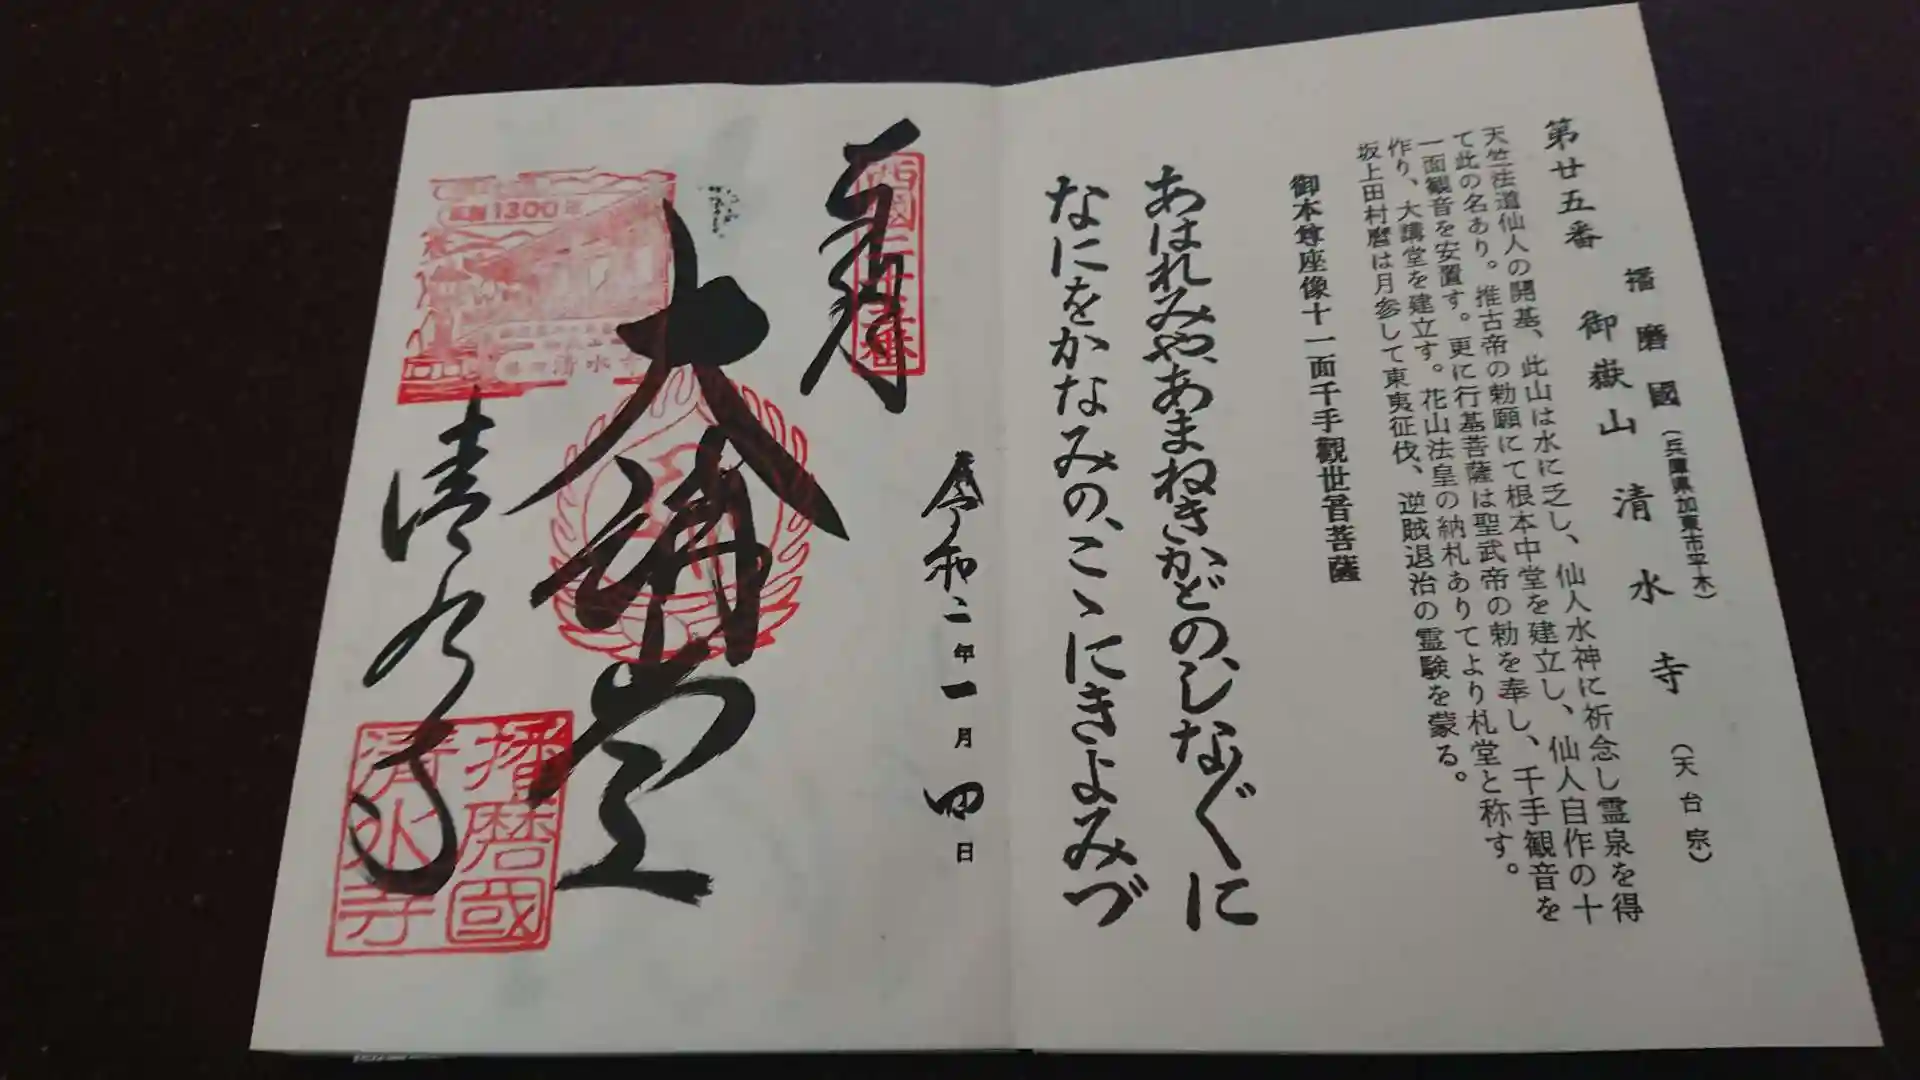 第廿五番
播磨國(兵庫県加東市平木)
御嶽山 清水寺 (天台宗)
天竺法道仙人の開基、此山は水に乏し、仙人水神に祈念し霊泉を得
て此の名あり。推古帝の勅願にて根本中堂を建立し、仙人自作の十
一面観音を安置す。更に行基菩薩は聖武帝の勅を奉し、千手観音を
作り、大講堂を建立す。花山法皇の納札ありてより札堂と称す。
坂上田村麿は月参して東夷征伐、逆賊退治の霊験を蒙る。
御本尊座像十一面千手觀世音菩薩
あはれみや、あまねきかどの、しなぐに
なにをかなみの、こゝにきよみづ
令和二年一月四日
奉拝
西國二十五番
大講堂
清水寺
1300年
清水寺
播磨國
清水寺